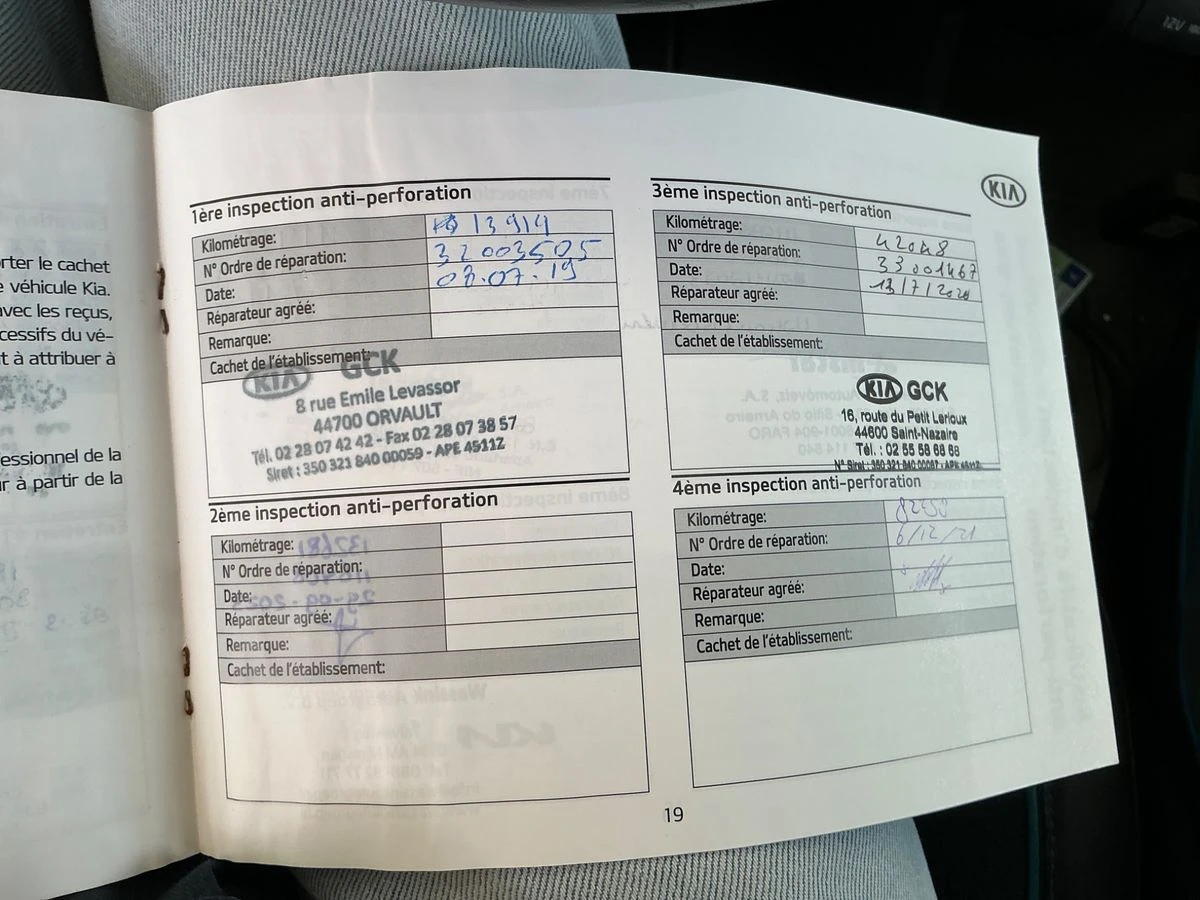 rter le cachet
e véhicule Kia.
avec les reçus,
cessifs du vé-
t à attribuer à
essionnel de la
ur à partir de la
1ère inspection anti-perforation
Kilométrage: 13914
N° Ordre de réparation: 32003505
Date: 08.07.19
Réparateur agréé:
Remarque:
Cachet de l'établissement:
KIA GCK
8 rue Emile Levassor
44700 ORVAULT
Tél. 02 28 07 42 42 - Fax 02 28 07 38 57
Siret : 350 321 840 00059 - APE 4511Z
2ème inspection anti-perforation
Kilométrage:
N° Ordre de réparation:
Date:
Réparateur agréé:
Remarque:
Cachet de l'établissement:
KIA
3ème inspection anti-perforation
Kilométrage: 42048
N° Ordre de réparation: 33001467
Date: 13/7/2020
Réparateur agréé:
Remarque:
Cachet de l'établissement:
KIA GCK
16, route du Petit Lerioux
44600 Saint-Nazaire
Tél. : 02 55 58 68 68
N° Siret : 350 321 840 00067 - APE 4511Z
4ème inspection anti-perforation
Kilométrage:
N° Ordre de réparation: 6/12/21
Date:
Réparateur agréé:
Remarque:
Cachet de l'établissement:
19